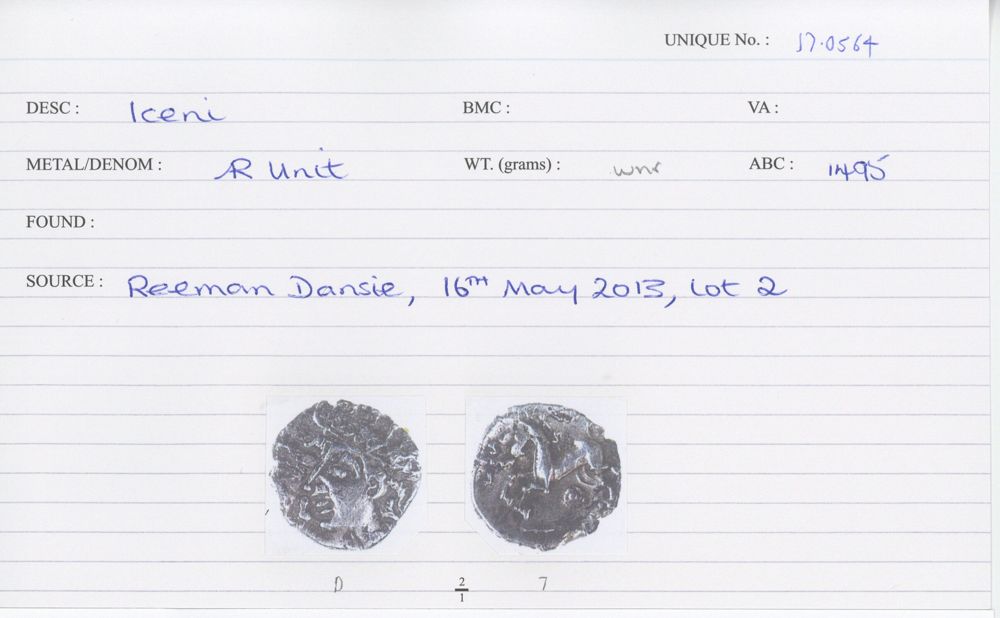 UNIQUE No. : 17.0564
DESC : Iceni BMC : VA :
METAL/DENOM : AR Unit WT. (grams) : wnr ABC : 1495
FOUND :
SOURCE : Reeman Dansie, 16TH May 2013, Lot 2
D 2/1 7